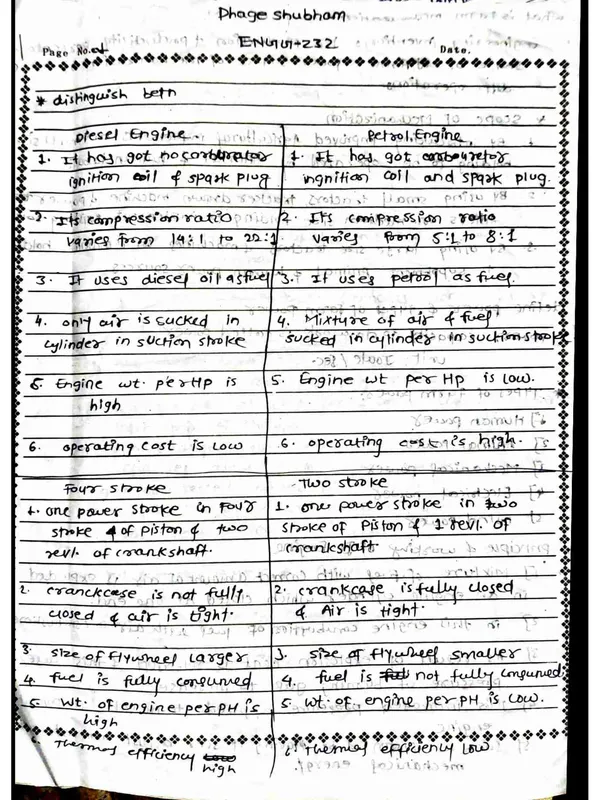 Dhage Shubham
ENGG-232
Page No.
Date.
* distinguish betn
Diesel Engine.
Petrol, Engine
1. It has got no carburator
ignition coil & spark plug
1. It has got carbouretor
ingnition coil and spark plug.
2. Its compression ratio
varies from 14:1 to 22:1
2. Its compression ratio
varies from 5:1 to 8:1
3. It uses diesel oil as fuel
3. It uses petrol as fuel.
4. only air is sucked in
cylinder in suction stroke
4. Mixture of air & fuel
sucked in cylinder in suction stroke
5. Engine wt. per HP is
high
5. Engine wt per Hp is low.
6. operating cost is low
6. operating cost is high.
Four stroke
Two stroke
1. one power stroke in Four
stroke of piston & two
revl. of crankshaft.
1. one power stroke in two
stroke of piston & 1 revl. of
crankshaft
2. cranckcase is not fully
closed & air is tight.
2. crankcase is fully closed
& Air is tight.
3. size of flywheel larger
3. size of flywheel smaller
4. fuel is fully consumed
4. fuel is not fully consumed
5. Wt. of engine per PH is
high
5. wt. of engine per PH is low.
6. Thermos efficiency
high
6. Thermos efficiency low